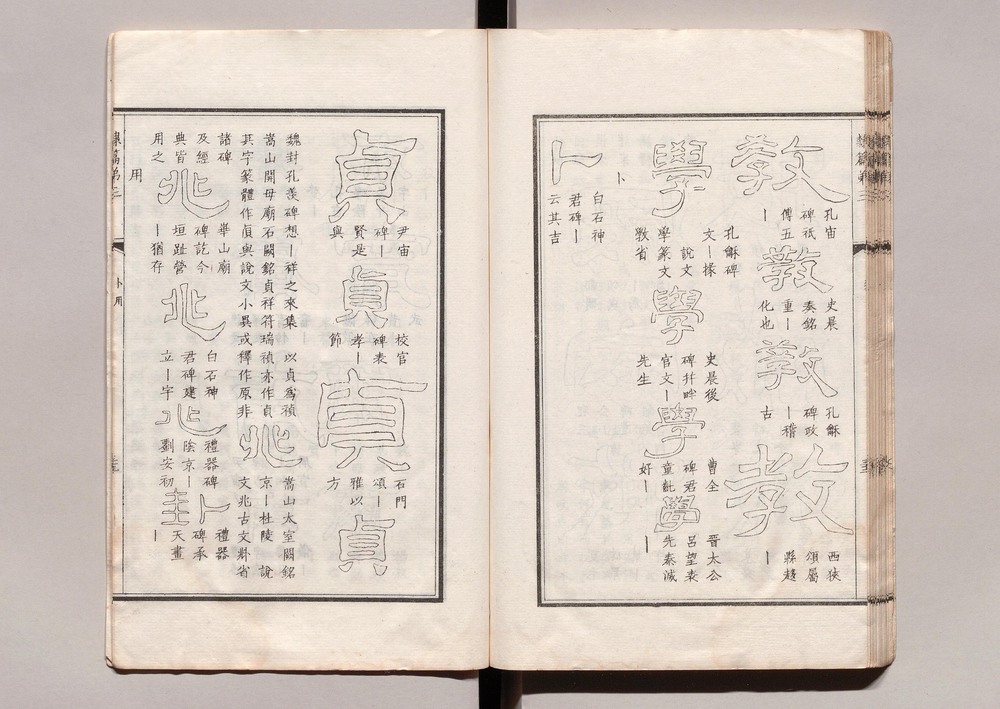 教
孔宙
碑祇
傅五
丨
教
史晨
奏銘
重丨
化也
教
孔龢
碑政
丨稽
古
教
西狹
頌屬
縣趨
丨
學
孔龢碑
文丨㨾
說文
學篆文
斆省
學
史晨後
碑幷畔
官文丨
先生
學
曹全
碑君
童齓
好丨
學
晉太公
呂望表
先秦滅
丨
卜
卜
白石神
君碑丨
云其吉
貞
尹宙
碑丨
賢是
與
貞
校官
碑表
孝丨
節
貞
石門
頌丨
雅以
方
貞
魏封孔羨碑想丨祥之來集 以貞爲禎
嵩山開母廟石闕銘貞祥符瑞禎亦作貞
其字篆體作貞與說文小異或釋作原非
兆
嵩山太室闕銘
京丨杜陵 說
文兆古文𠧞省
諸碑
及經
典皆
用之
兆
華山廟
碑訖今
垣趾營
丨猶存
兆
白石神
君碑建
立丨宇
兆
禮器碑
陰京丨
劉安初
卦
禮器
碑承
天畫
丨
用
卜用